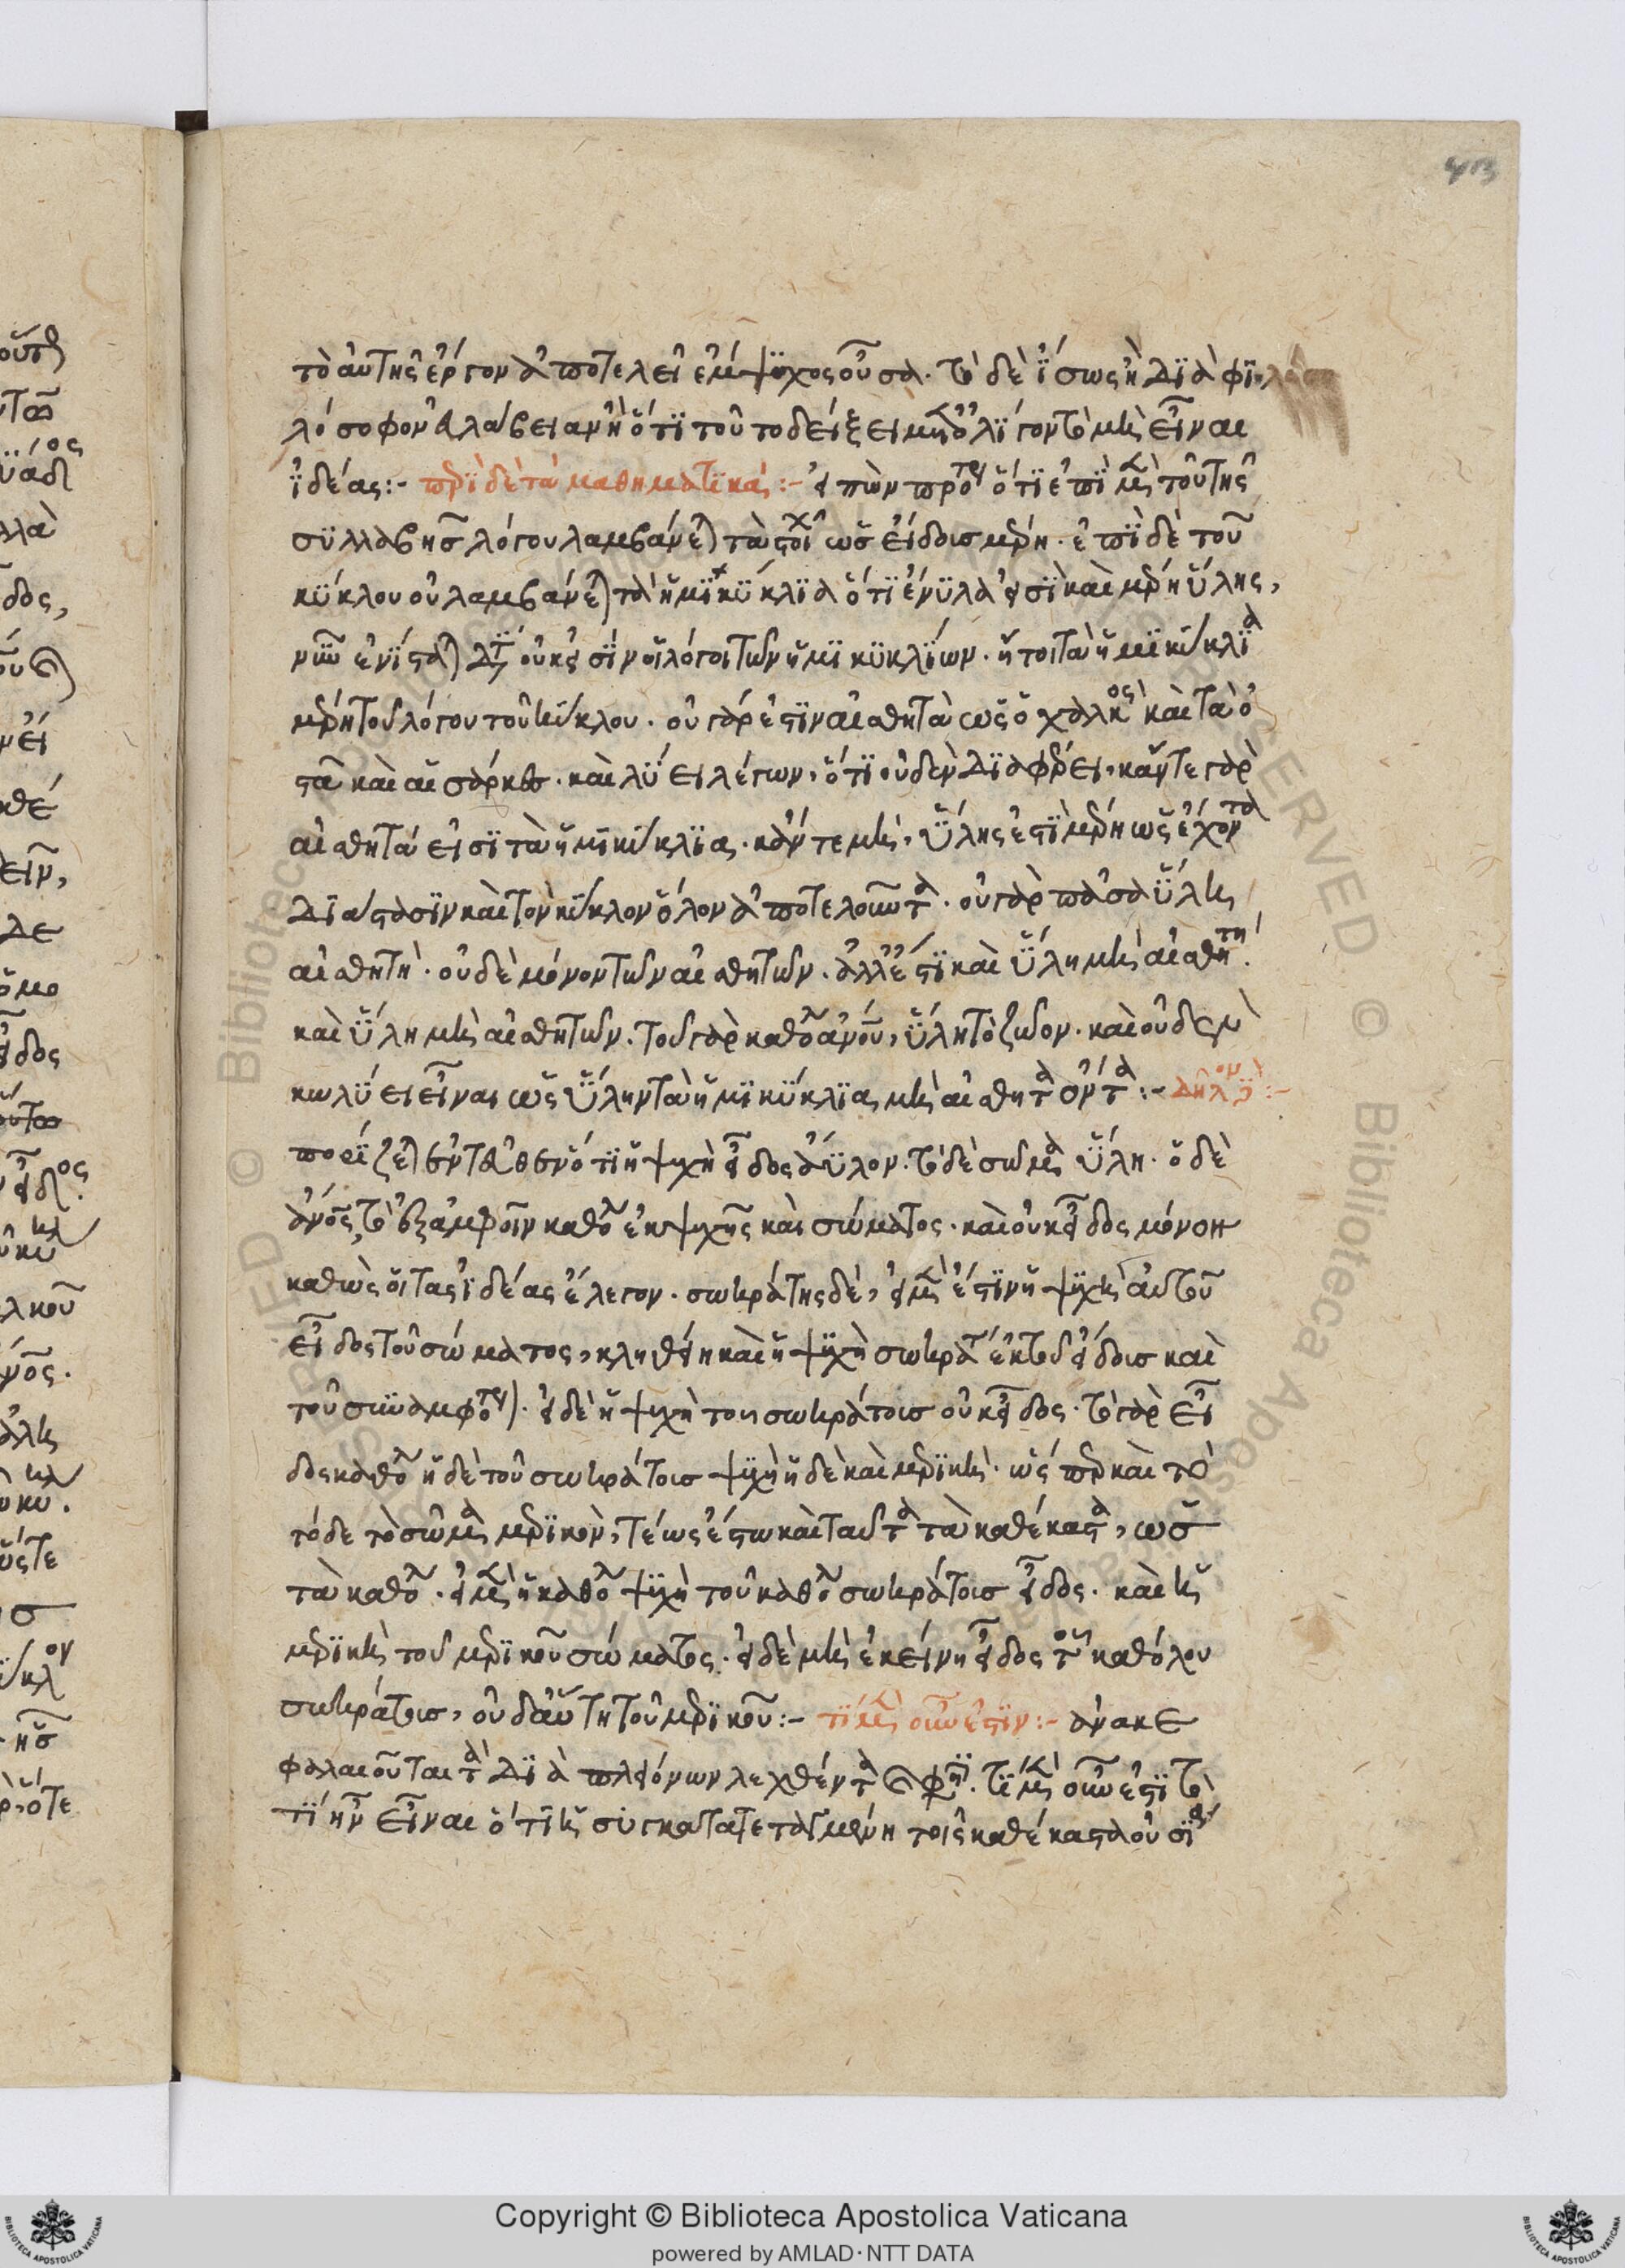 413
τὸ αὑτῆς ἔργον ἀποτελεῖ ἔμψυχος οὖσα. τὸ δὲ ἴσως ἢ διὰ φι
λόσοφον εὐλάβειαν ἢ ὅτι τοῦτο δείξει μετ' ὀλίγον τὸ μὴ εἶναι
ἰδέας:- περὶ δὲ τὰ μαθηματικά:- εἰπὼν πρότερον ὅτι ἐπὶ μὲν τοῦ τῆς
συλλαβῆς λόγου λαμβάνεται τὰ στοιχεῖα ὡς εἴδους μέρη. ἐπὶ δὲ τοῦ
κύκλου οὐ λαμβάνεται τὰ ἡμικύκλια ὅτι ἔνυλά εἰσι καὶ μέρη ὕλης,
νῦν ἐνίσταται διατί οὐκ εἰσὶν οἱ λόγοι τῶν ἡμικυκλίων. ἤτοι τὰ ἡμικύκλια
μέρη τοῦ λόγου τοῦ κύκλου. οὐ γάρ ἐστιν αἰσθητὰ ὡς ὁ χαλκὸς καὶ τὰ ὀ
στᾶ καὶ αἱ σάρκες. καὶ λύει λέγων, ὅτι οὐδὲν διαφέρει, κἄντε γὰρ
αἰσθητά εἰσι τὰ ἡμικύκλια. κἄντε μὴ, ὕλης ἐστὶ μέρη ὡς ἔχοντα
διάστασιν καὶ τὸν κύκλον ὅλον ἀποτελοῦντα. οὐ γὰρ πᾶσα ὕλη
αἰσθητή. οὐδὲ μόνον τῶν αἰσθητῶν. ἀλλ' ἔστι καὶ ὕλη μὴ αἰσθητή.
καὶ ὕλη μὴ αἰσθητῶν. τοῦ γὰρ καθόλου ἀνθρώπου, ὕλη τὸ ζῶον. καὶ οὐδὲν
κωλύει εἶναι ὡς ὕλην τὰ ἡμικύκλια μὴ αἰσθητὰ ὄντα:- δῆλον δὲ:-
πορίζεται ἐντεῦθεν ὅτι ἡ ψυχὴ εἶδος ἄϋλον. τὸ δὲ σῶμα ὕλη. ὁ δὲ
ἄνθρωπος, τὸ ἐξ ἀμφοῖν καθόλου ἐκ ψυχῆς καὶ σώματος. καὶ οὐκ εἶδος μόνον
καθὼς οἱ τὰς ἰδέας ἔλεγον. σωκράτης δὲ, εἰ μὲν ἔστιν ἡ ψυχὴ αὐτοῦ
εἶδος τοῦ σώματος, κληθείη καὶ ἡ ψυχὴ σωκράτης ἐκ τοῦ εἴδους καὶ
τοῦ συναμφοτέρου. εἰ δὲ ἡ ψυχὴ τοῦ σωκράτους οὐκ εἶδος. τὸ γὰρ εἶ
δος καθόλου ἡ δὲ τοῦ σωκράτους ψυχὴ ἥδε καὶ μερική. ὥσπερ καὶ τὸ
τόδε τὸ σῶμα μερικὸν, τέως ἔστω καὶ ταῦτα τὰ καθέκαστα, ὡς
τὰ καθόλου. εἰ μὲν ἡ καθόλου ψυχὴ τοῦ καθόλου σωκράτους εἶδος. καὶ ἡ
μερικὴ τοῦ μερικοῦ σώματος. εἰ δὲ μὴ ἐκείνη εἶδος τοῦ καθόλου
σωκράτους, οὐδ' αὕτη τοῦ μερικοῦ:- τί μὲν οὖν ἐστιν:- ἀνακε
φαλαιοῦται τὰ διὰ πλειόνων λεχθέντα καὶ φησί. τί μὲν οὖν ἐστι τὸ
τί ἦν εἶναι ὅτι ἡ συγκατατεταγμένη τοῖς καθέκαστα οὐσία
Copyright © Biblioteca Apostolica Vaticana
powered by AMLAD·NTT DATA